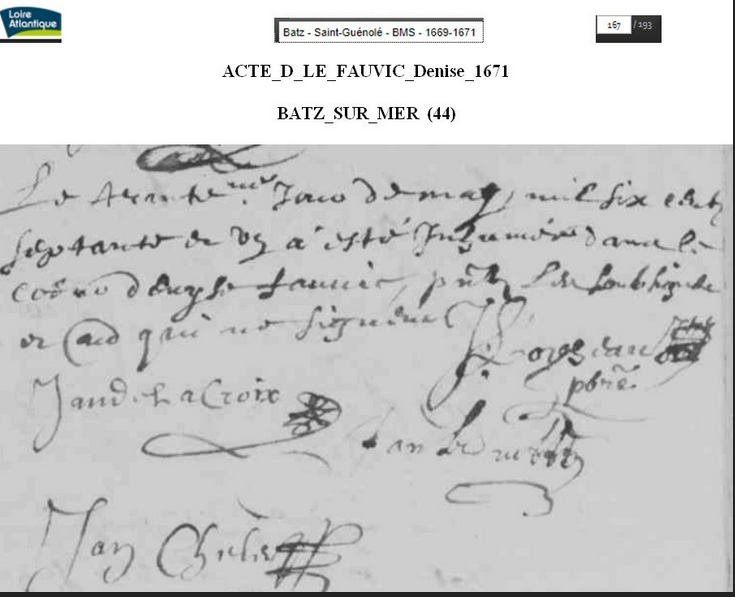 Loire
Atlantique
Batz - Saint-Guénolé - BMS - 1669-1671
167 / 193
ACTE_D_LE_FAUVIC_Denise_1671
BATZ_SUR_MER (44)
Le trante me Jour de may, mil six cent
septante et un a esté Inhumée dans le
denyse fauvic, les soubsignés
et qui ne signent
pbre
Jan de La Croix
Jan
Jan